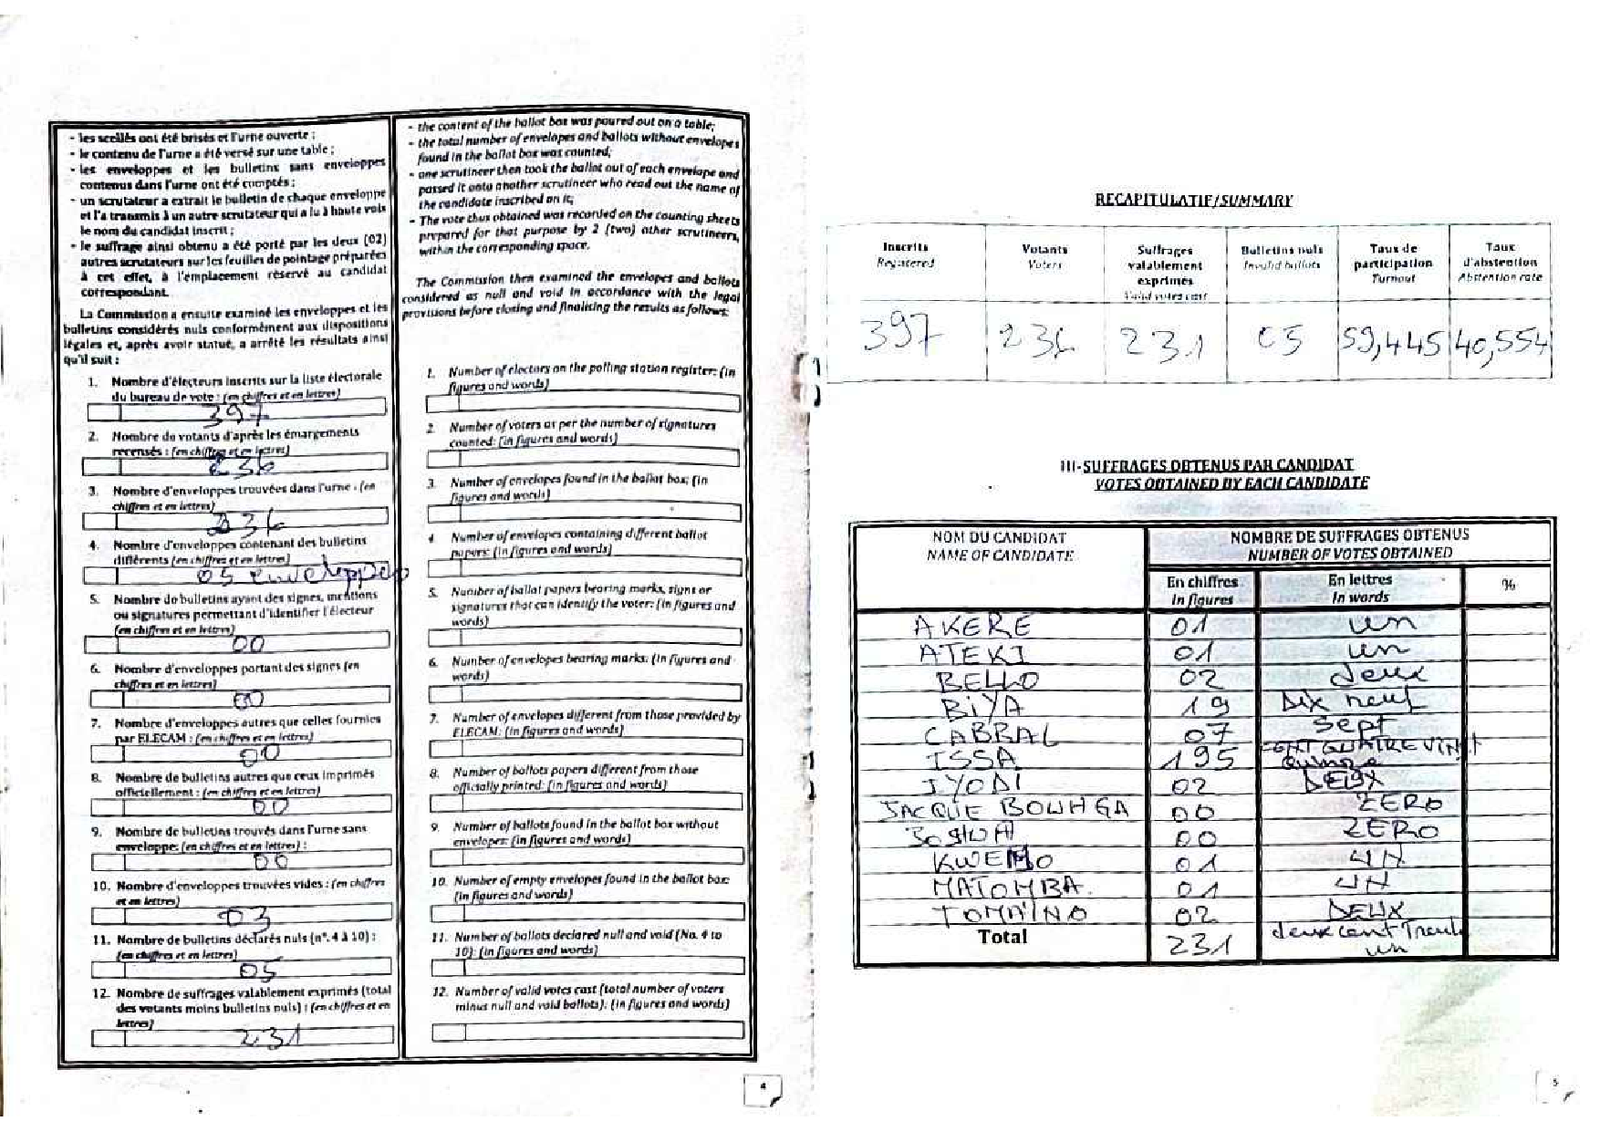 - les scellés ont été brisés et l'urne ouverte ;
- le contenu de l'urne a été versé sur une table ;
- les enveloppes et les bulletins sans enveloppes
contenus dans l'urne ont été comptés ;
- un scrutateur a extrait le bulletin de chaque enveloppe
et l'a transmis à un autre scrutateur qui a lu à haute voix
le nom du candidat inscrit ;
- le suffrage ainsi obtenu a été porté par les deux (02)
autres scrutateurs sur les feuilles de pointage préparées
à cet effet, à l'emplacement réservé au candidat
correspondant.
La Commission a ensuite examiné les enveloppes et les
bulletins considérés nuls conformément aux dispositions
légales et, après avoir statué, a arrêté les résultats ainsi
qu'il suit :
1. Nombre d'électeurs inscrits sur la liste électorale
du bureau de vote : (en chiffres et en lettres)
397
2. Nombre de votants d'après les émargements
recensés : (en chiffres et en lettres)
236
3. Nombre d'enveloppes trouvées dans l'urne : (en
chiffres et en lettres)
236
4. Nombre d'enveloppes contenant des bulletins
différents (en chiffres et en lettres)
05 enveloppes
5. Nombre de bulletins ayant des signes, mentions
ou signatures permettant d'identifier l'électeur
(en chiffres et en lettres)
00
6. Nombre d'enveloppes portant des signes (en
chiffres et en lettres)
00
7. Nombre d'enveloppes autres que celles fournies
par ELECAM : (en chiffres et en lettres)
00
8. Nombre de bulletins autres que ceux imprimés
officiellement : (en chiffres et en lettres)
00
9. Nombre de bulletins trouvés dans l'urne sans
enveloppe: (en chiffres et en lettres) :
00
10. Nombre d'enveloppes trouvées vides : (en chiffres
et en lettres)
03
11. Nombre de bulletins déclarés nuls (n°. 4 à 10) :
(en chiffres et en lettres)
05
12. Nombre de suffrages valablement exprimés (total
des votants moins bulletins nuls) : (en chiffres et en
lettres)
231
- the content of the ballot box was poured out on a table;
- the total number of envelopes and ballots without envelopes
found in the ballot box was counted;
- one scrutineer then took the ballot out of each envelope and
passed it onto another scrutineer who read out the name of
the candidate inscribed on it;
- The vote thus obtained was recorded on the counting sheets
prepared for that purpose by 2 (two) other scrutineers,
within the corresponding space.
The Commission then examined the envelopes and ballots
considered as null and void in accordance with the legal
provisions before closing and finalising the results as follows:
1. Number of electors on the polling station register: (in
figures and words)
2. Number of voters as per the number of signatures
counted: (in figures and words)
3. Number of envelopes found in the ballot box; (in
figures and words)
4. Number of envelopes containing different ballot
papers: (in figures and words)
5. Number of ballot papers bearing marks, signs or
signatures that can identify the voter: (in figures and
words)
6. Number of envelopes bearing marks: (in figures and
words)
7. Number of envelopes different from those provided by
ELECAM: (in figures and words)
8. Number of ballots papers different from those
officially printed: (in figures and words)
9. Number of ballots found in the ballot box without
envelopes: (in figures and words)
10. Number of empty envelopes found in the ballot box:
(in figures and words)
11. Number of ballots declared null and void (No. 4 to
10): (in figures and words)
12. Number of valid votes cast (total number of voters
minus null and void ballots): (in figures and words)
4
RECAPITULATIF/SUMMARY
Inscrits Registered
Votants Voters
Suffrages valablement exprimés Valid votes cast
Bulletins nuls Invalid ballots
Taux de participation Turnout
Taux d'abstention Abstention rate
397 236 231 05 59,445 40,554
III-SUFFRAGES OBTENUS PAR CANDIDAT
VOTES OBTAINED BY EACH CANDIDATE
NOM DU CANDIDAT
NAME OF CANDIDATE
NOMBRE DE SUFFRAGES OBTENUS
NUMBER OF VOTES OBTAINED
En chiffres
In figures
En lettres
In words
%
AKERE 01 un
ATEKI 01 un
BELLO 02 deux
BIYA 19 Dix neuf
CABRAL 07 Sept
ISSA 195 CENT QUATRE VINGT
quinze
IYODI 02 DEUX
JACQUE BOUHGA 00 ZERO
JOSHUA 00 ZERO
KWEMO 01 UN
MATOMBA. 01 UN
TOMAINO 02 DEUX
Total 231 deux cent Trente
un
5